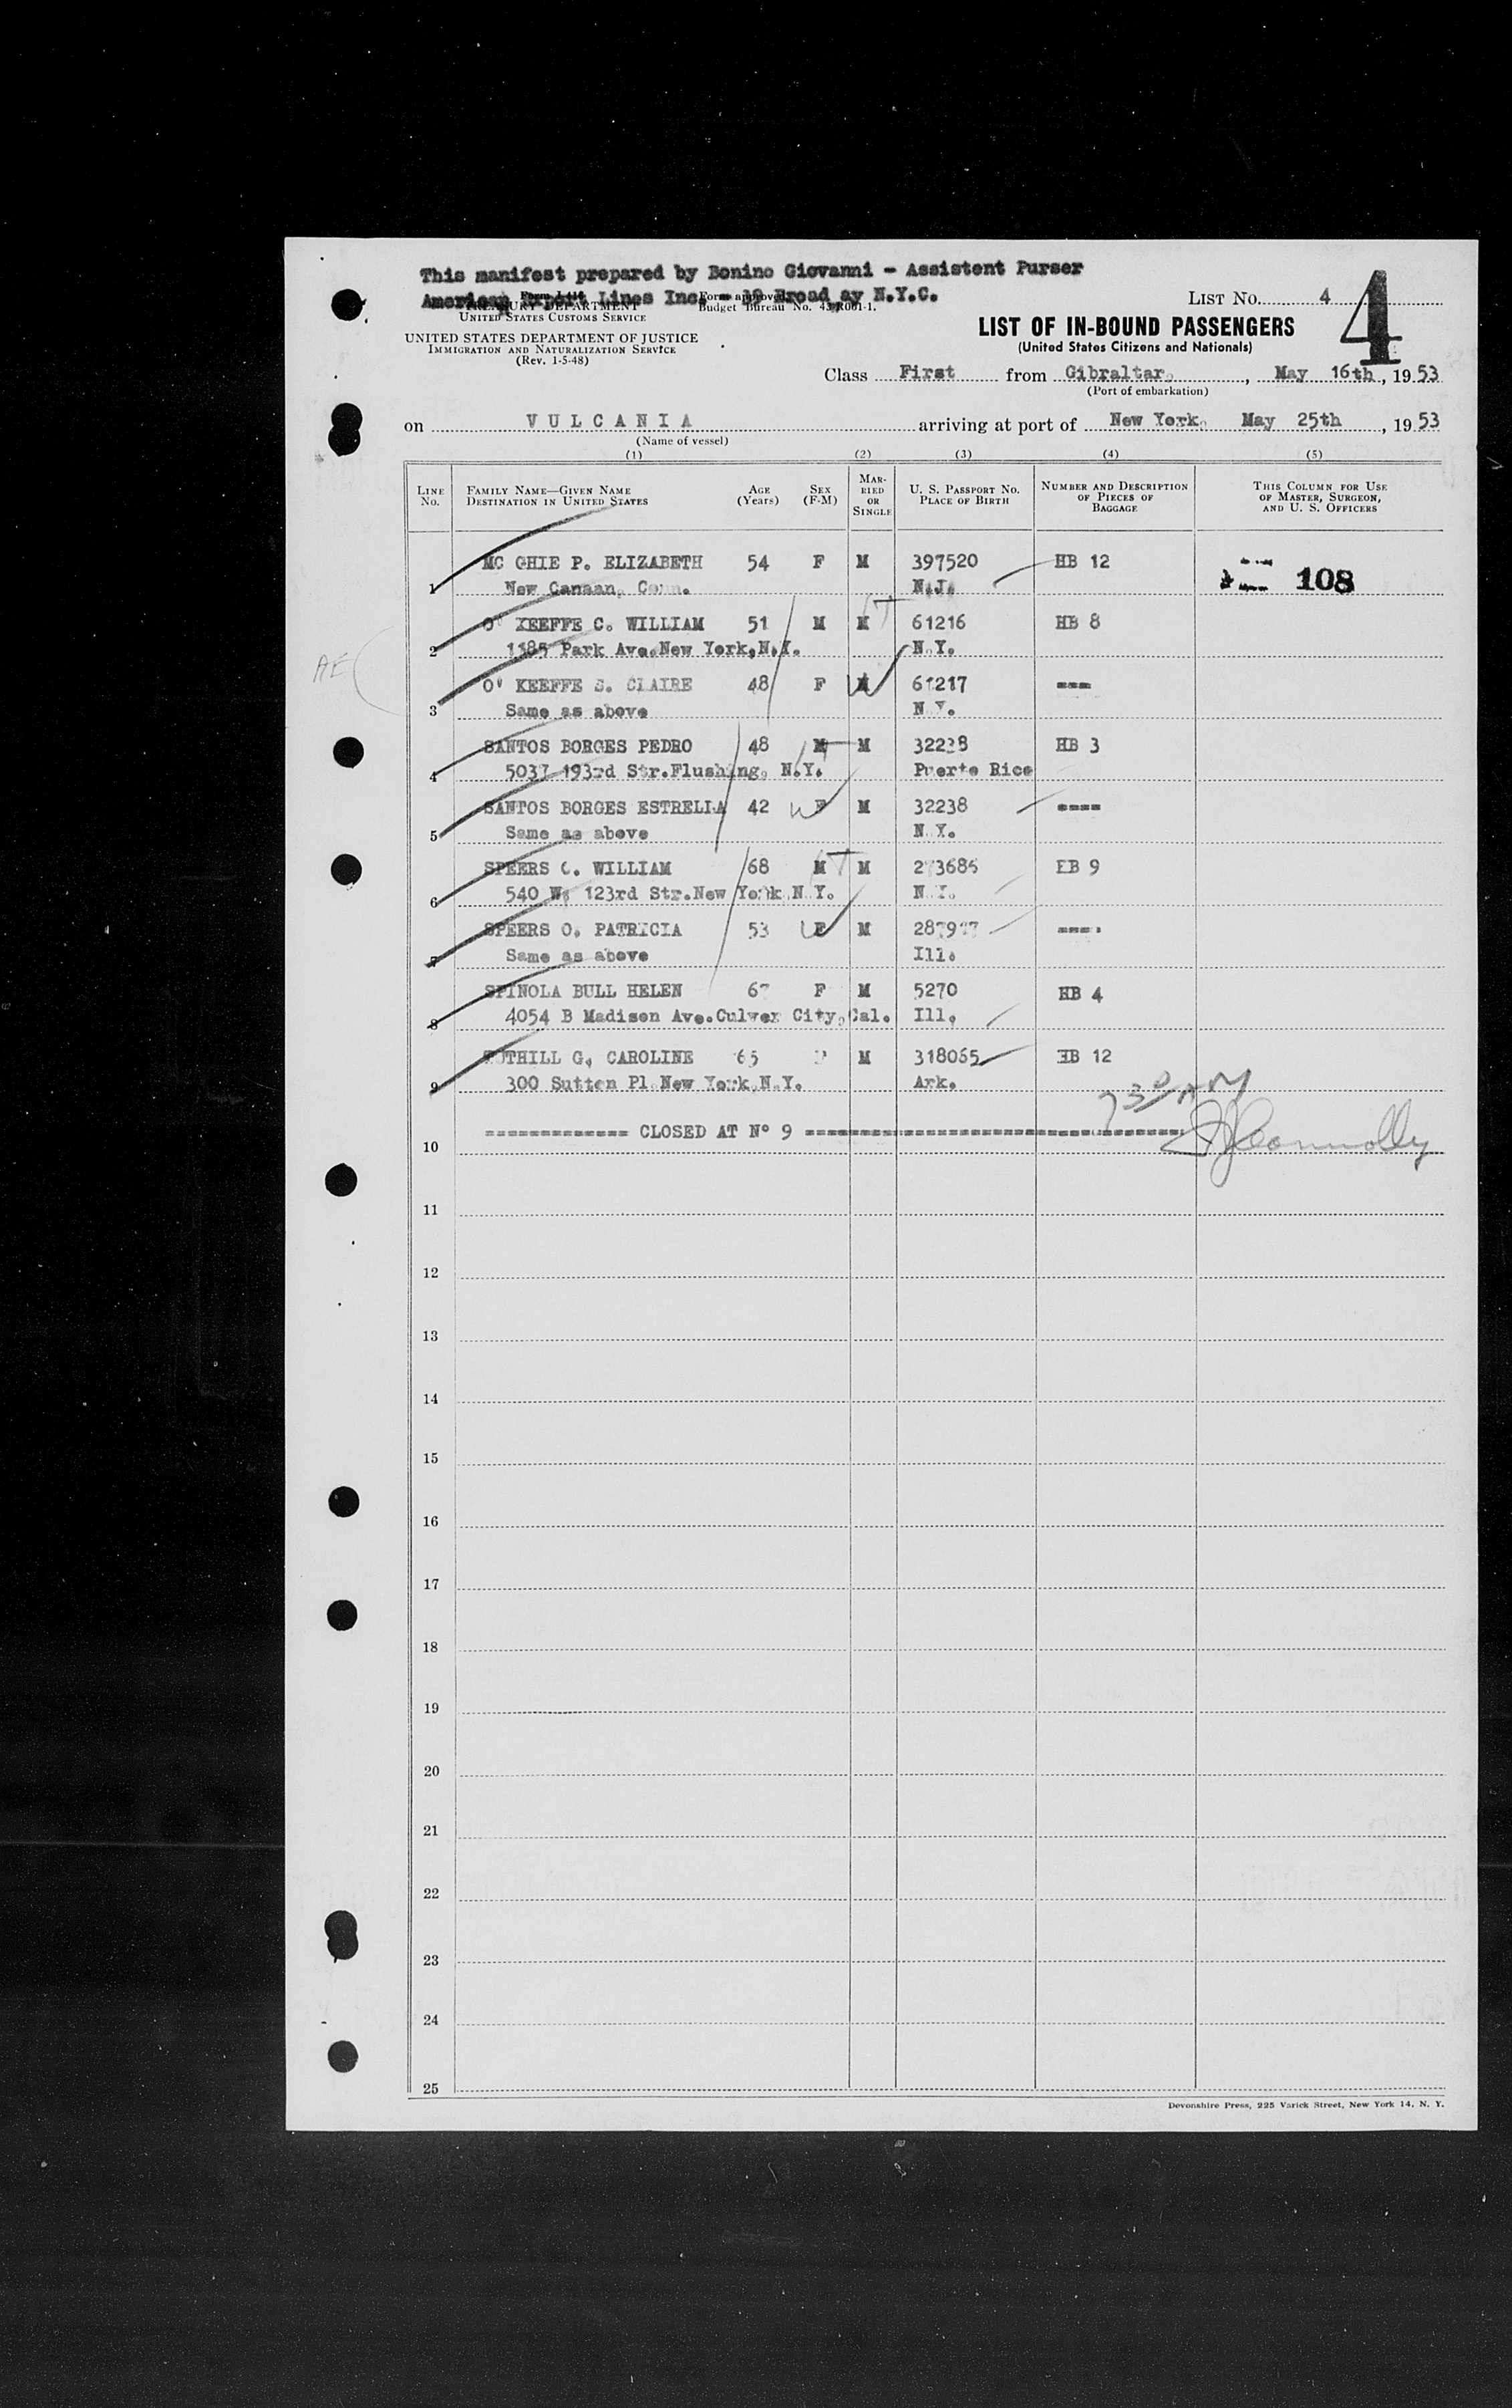 This manifest prepared by Bonino Giovanni - Assistent Purser
American Export Lines Inc. N.Y.C.
TREASURY DEPARTMENT
UNITED STATES CUSTOMS SERVICE
Form approved
Budget Bureau No. 43-R061-1.
UNITED STATES DEPARTMENT OF JUSTICE
IMMIGRATION AND NATURALIZATION SERVICE
(Rev. 1-5-48)
LIST No. 4
4
LIST OF IN-BOUND PASSENGERS
(United States Citizens and Nationals)
Class First from Gibraltar, May 16th, 1953
(Port of embarkation)
on VULCANIA arriving at port of New York, May 25th, 1953
(Name of vessel)
(1) (2) (3) (4) (5)
LINE No. FAMILY NAME—GIVEN NAME DESTINATION IN UNITED STATES AGE (Years) SEX (F-M) MARRIED OR SINGLE U. S. PASSPORT No. PLACE OF BIRTH NUMBER AND DESCRIPTION OF PIECES OF BAGGAGE THIS COLUMN FOR USE OF MASTER, SURGEON, AND U. S. OFFICERS
MC GHIE P. ELIZABETH 54 F M 397520 HB 12 108
1 New Canaan, Conn. N.J.
O' KEEFFE C. WILLIAM 51 M M 61216 HB 8
2 1185 Park Ave.New York,N.Y. N.Y.
AE
O' KEEFFE S. CLAIRE 48 F M 61217 ----
3 Same as above N.Y.
SANTOS BORGES PEDRO 48 M M 32228 HB 3
4 5037 193rd Str.Flushing, N.Y. Puerto Rico
SANTOS BORGES ESTRELLA 42 F M 32238 ----
5 Same as above N.Y.
SPEERS C. WILLIAM 68 M M 273686 HB 9
6 540 W. 123rd Str.New York N.Y. N.Y.
SPEERS O. PATRICIA 53 F M ----
7 Same as above Ill.
SPINOLA BULL HELEN 67 F M 5270 HB 4
8 4054 B Madison Ave.Culver City,Cal. Ill.
TUTHILL G. CAROLINE 65 F M 318065 HB 12
9 300 Sutton Pl New York,N.Y. Ark.
730 AM
------------- CLOSED AT N° 9 -----------------------------------
Connolly
10
11
12
13
14
15
16
17
18
19
20
21
22
23
24
25
Devonshire Press, 225 Varick Street, New York 14, N. Y.